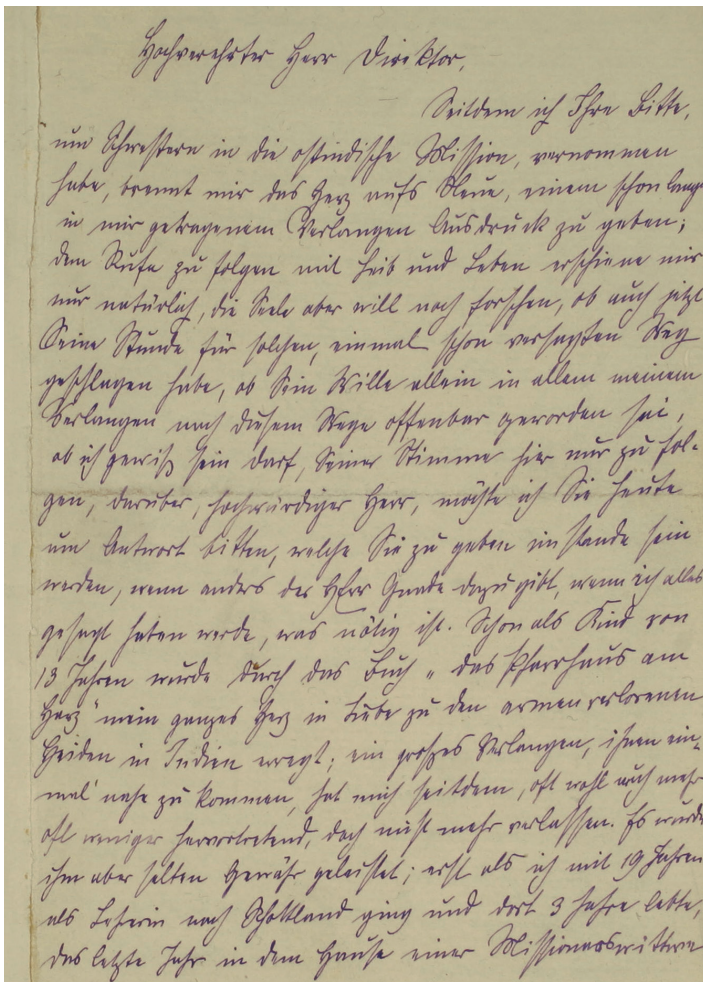 Hochverehrter Herr Direktor,
Seitdem ich Ihre Bitte,
um Schwestern in die ostindische Mission, vernommen
habe, brennt mir das Herz aufs Neue, einem schon lange
in mir getragenem Verlangen Ausdruck zu geben;
dem Rufe zu folgen mit Leib und Leben erschiene mir
nur natürlich, die Seele aber will noch forschen, ob auch jetzt
Seine Stunde für solchen, einmal schon versagten Weg
geschlagen habe, ob Sein Wille allein in allem meinem
Verlangen nach diesem Wege offenbar geworden sei,
ob ich gewiß sein darf, Seiner Stimme hier nur zu fol-
gen, darüber, hochwürdiger Herr, möchte ich Sie heute
um Antwort bitten, welche Sie zu geben im stande sein
werden, wenn anders der HErr Gnade dazu gibt, wenn ich alles
gesagt haben werde, was nötig ist. Schon als Kind von
13 Jahren wurde durch das Buch „das Pfarrhaus am
Harz" mein ganzes Herz in Liebe zu den armen verlorenen
Heiden in Indien erregt; ein großes Verlangen, ihnen ein-
mal nahe zu kommen, hat mich seitdem, oft wohl auch mehr
oft weniger hervortretend, doch nicht mehr verlassen. Es wurde
ihm aber selten Gewähr geleistet; erst als ich mit 19 Jahren
als Lehrerin nach Schottland ging und dort 3 Jahre lebte,
das letzte Jahr in dem Hause einer Missionarswittwe